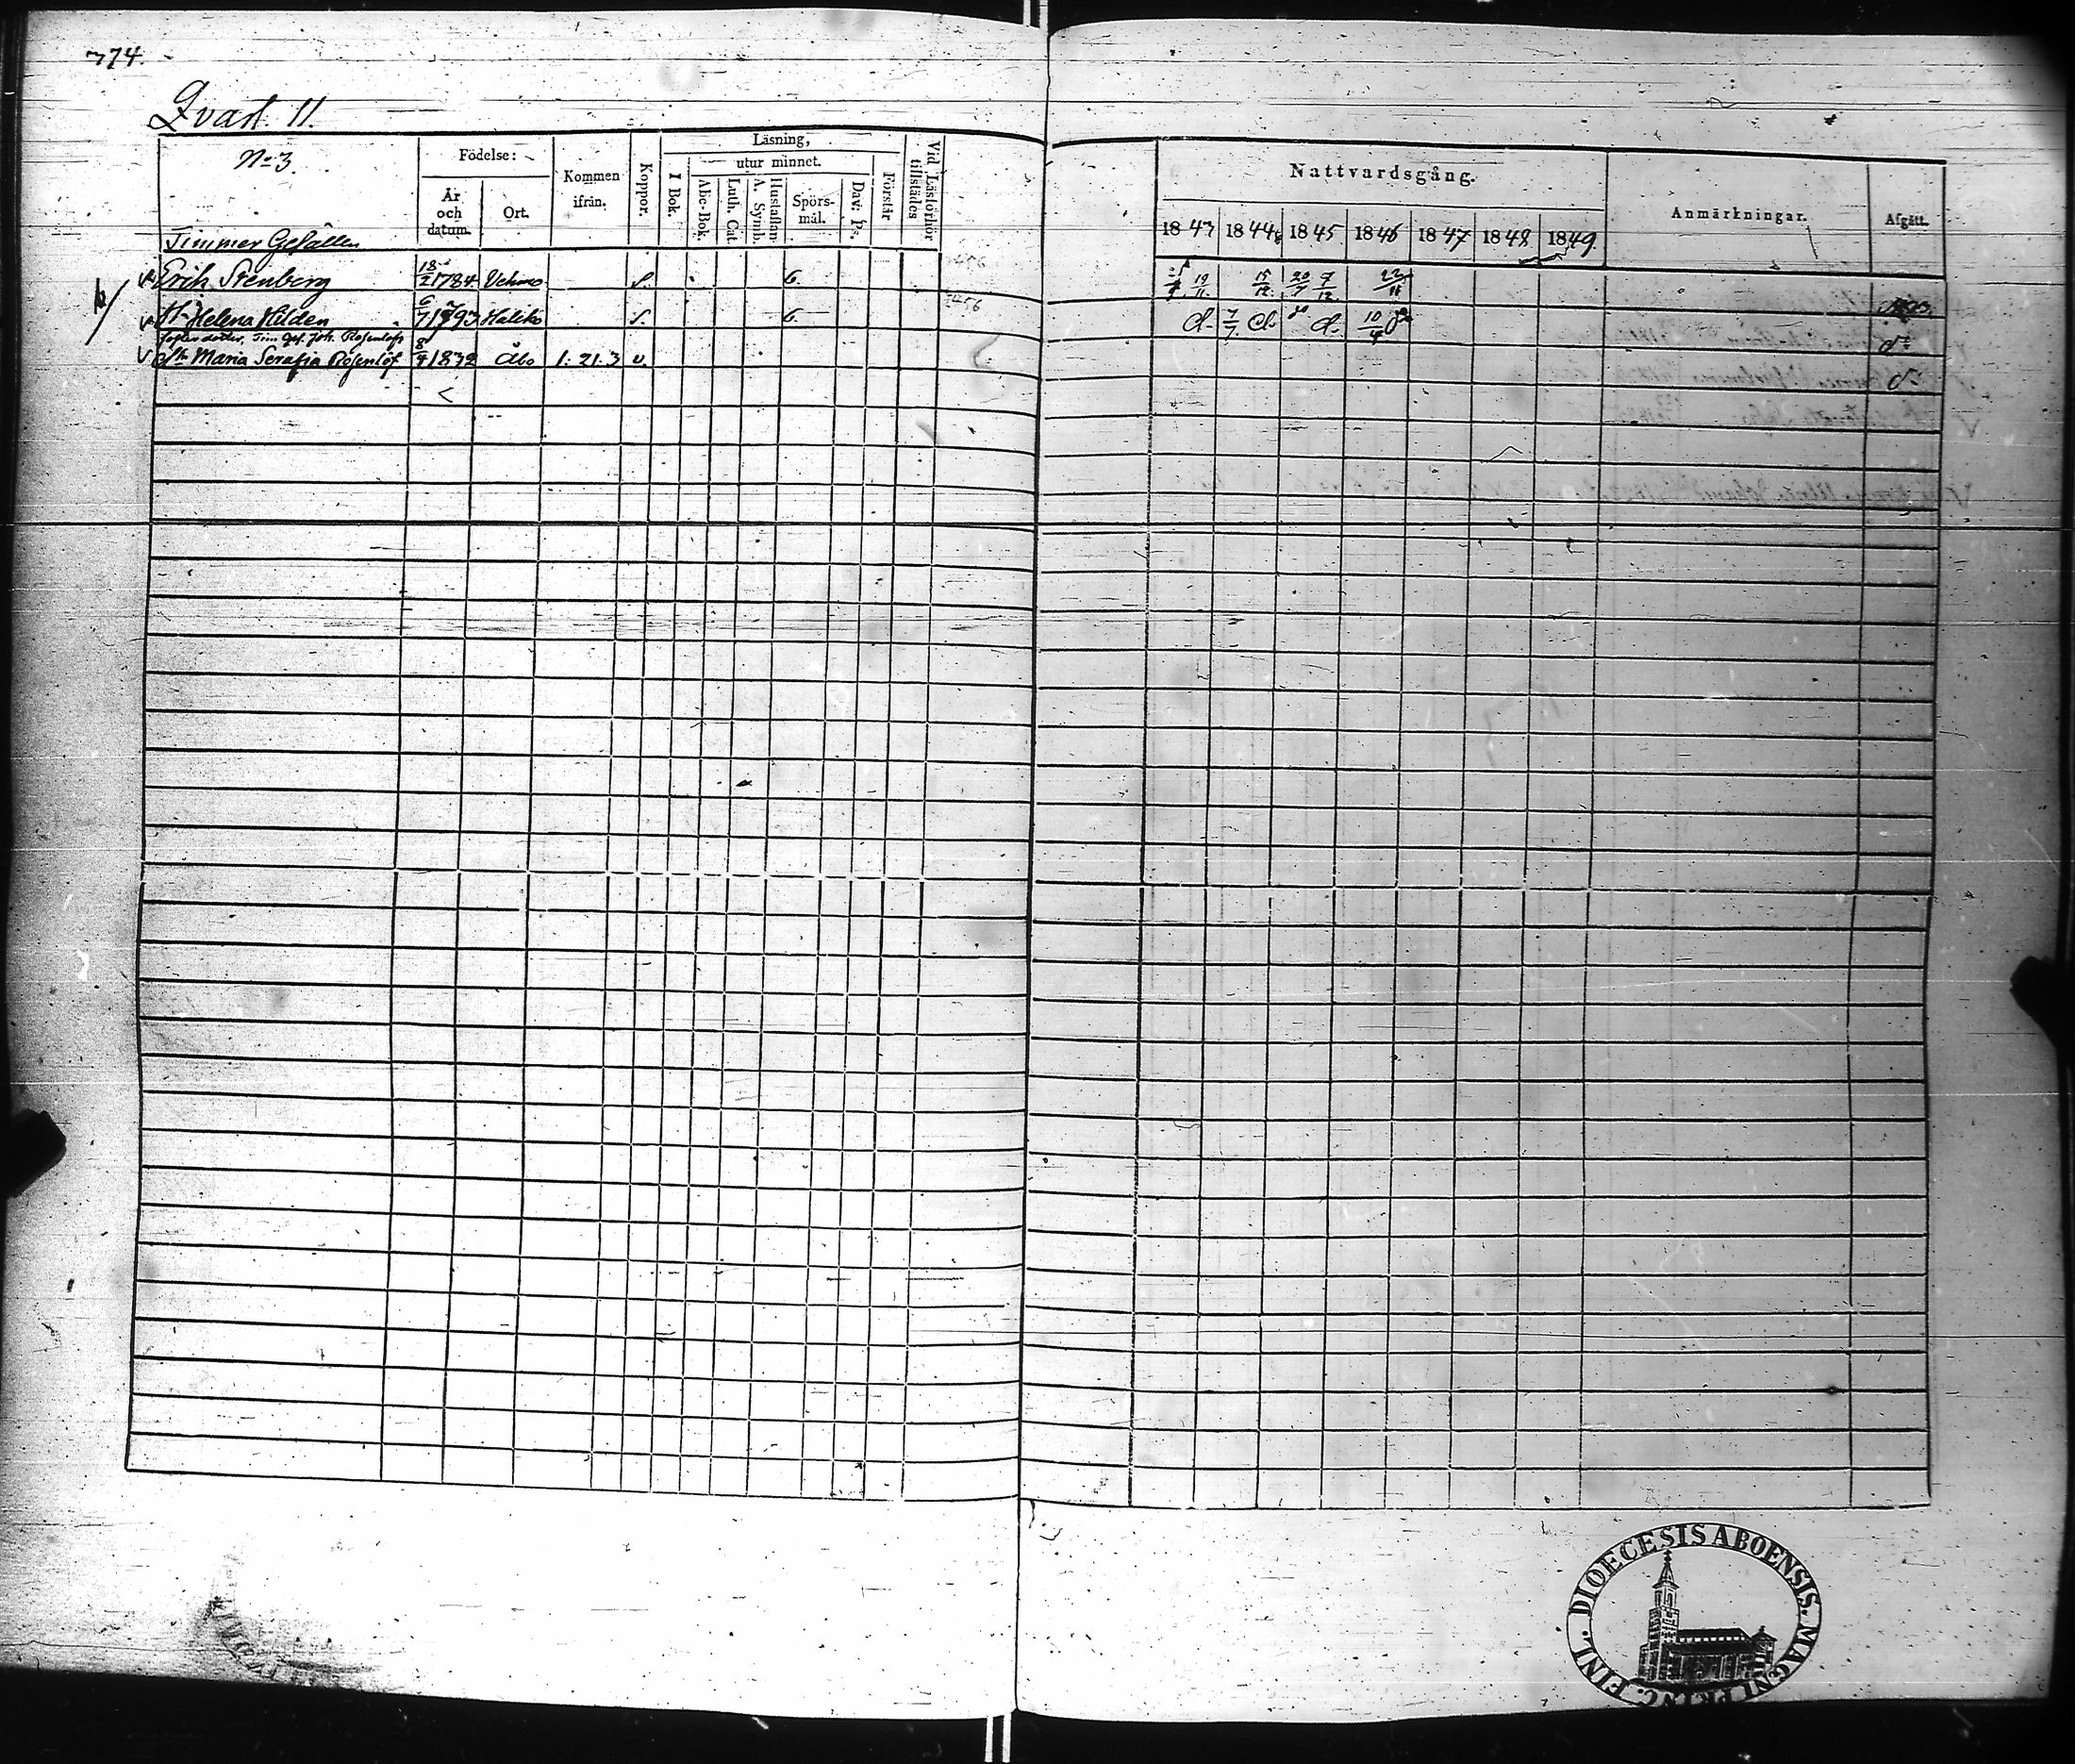 774.
Qvart. 11.
No 3.
Födelse:
År och datum.
Ort.
Kommen ifrån.
Koppor.
Läsning,
utur minnet.
I Bok.
Abc-Bok.
Luth. Cat.
Hustaflan A. Symb.
Spörsmål.
Dav: Ps.
Förstår
Vid Läsförhör tillstädes
Nattvardsgång.
1843 1844 1845 1846 1847 1848 1849.
Anmärkningar.
Afgått.
Timmer Gesällen
Erich Stenberg 18/2 1784. Vehmo s. 6. 19/11. 15/12. 20/7 7/12 22/11
H. Helena Hilden 6/7 1793 Haliko s. 6. d. 7/7. d. do d. 10/4 do
foster dotter, Tim. Ges. Joh. Rosenlöfs
Maria Serafia Rosenlöf 8/4 1832 Åbo 1. 21. 3 v.
DIOECESIS ABOENSIS. MAGNI PRINC. FINL.